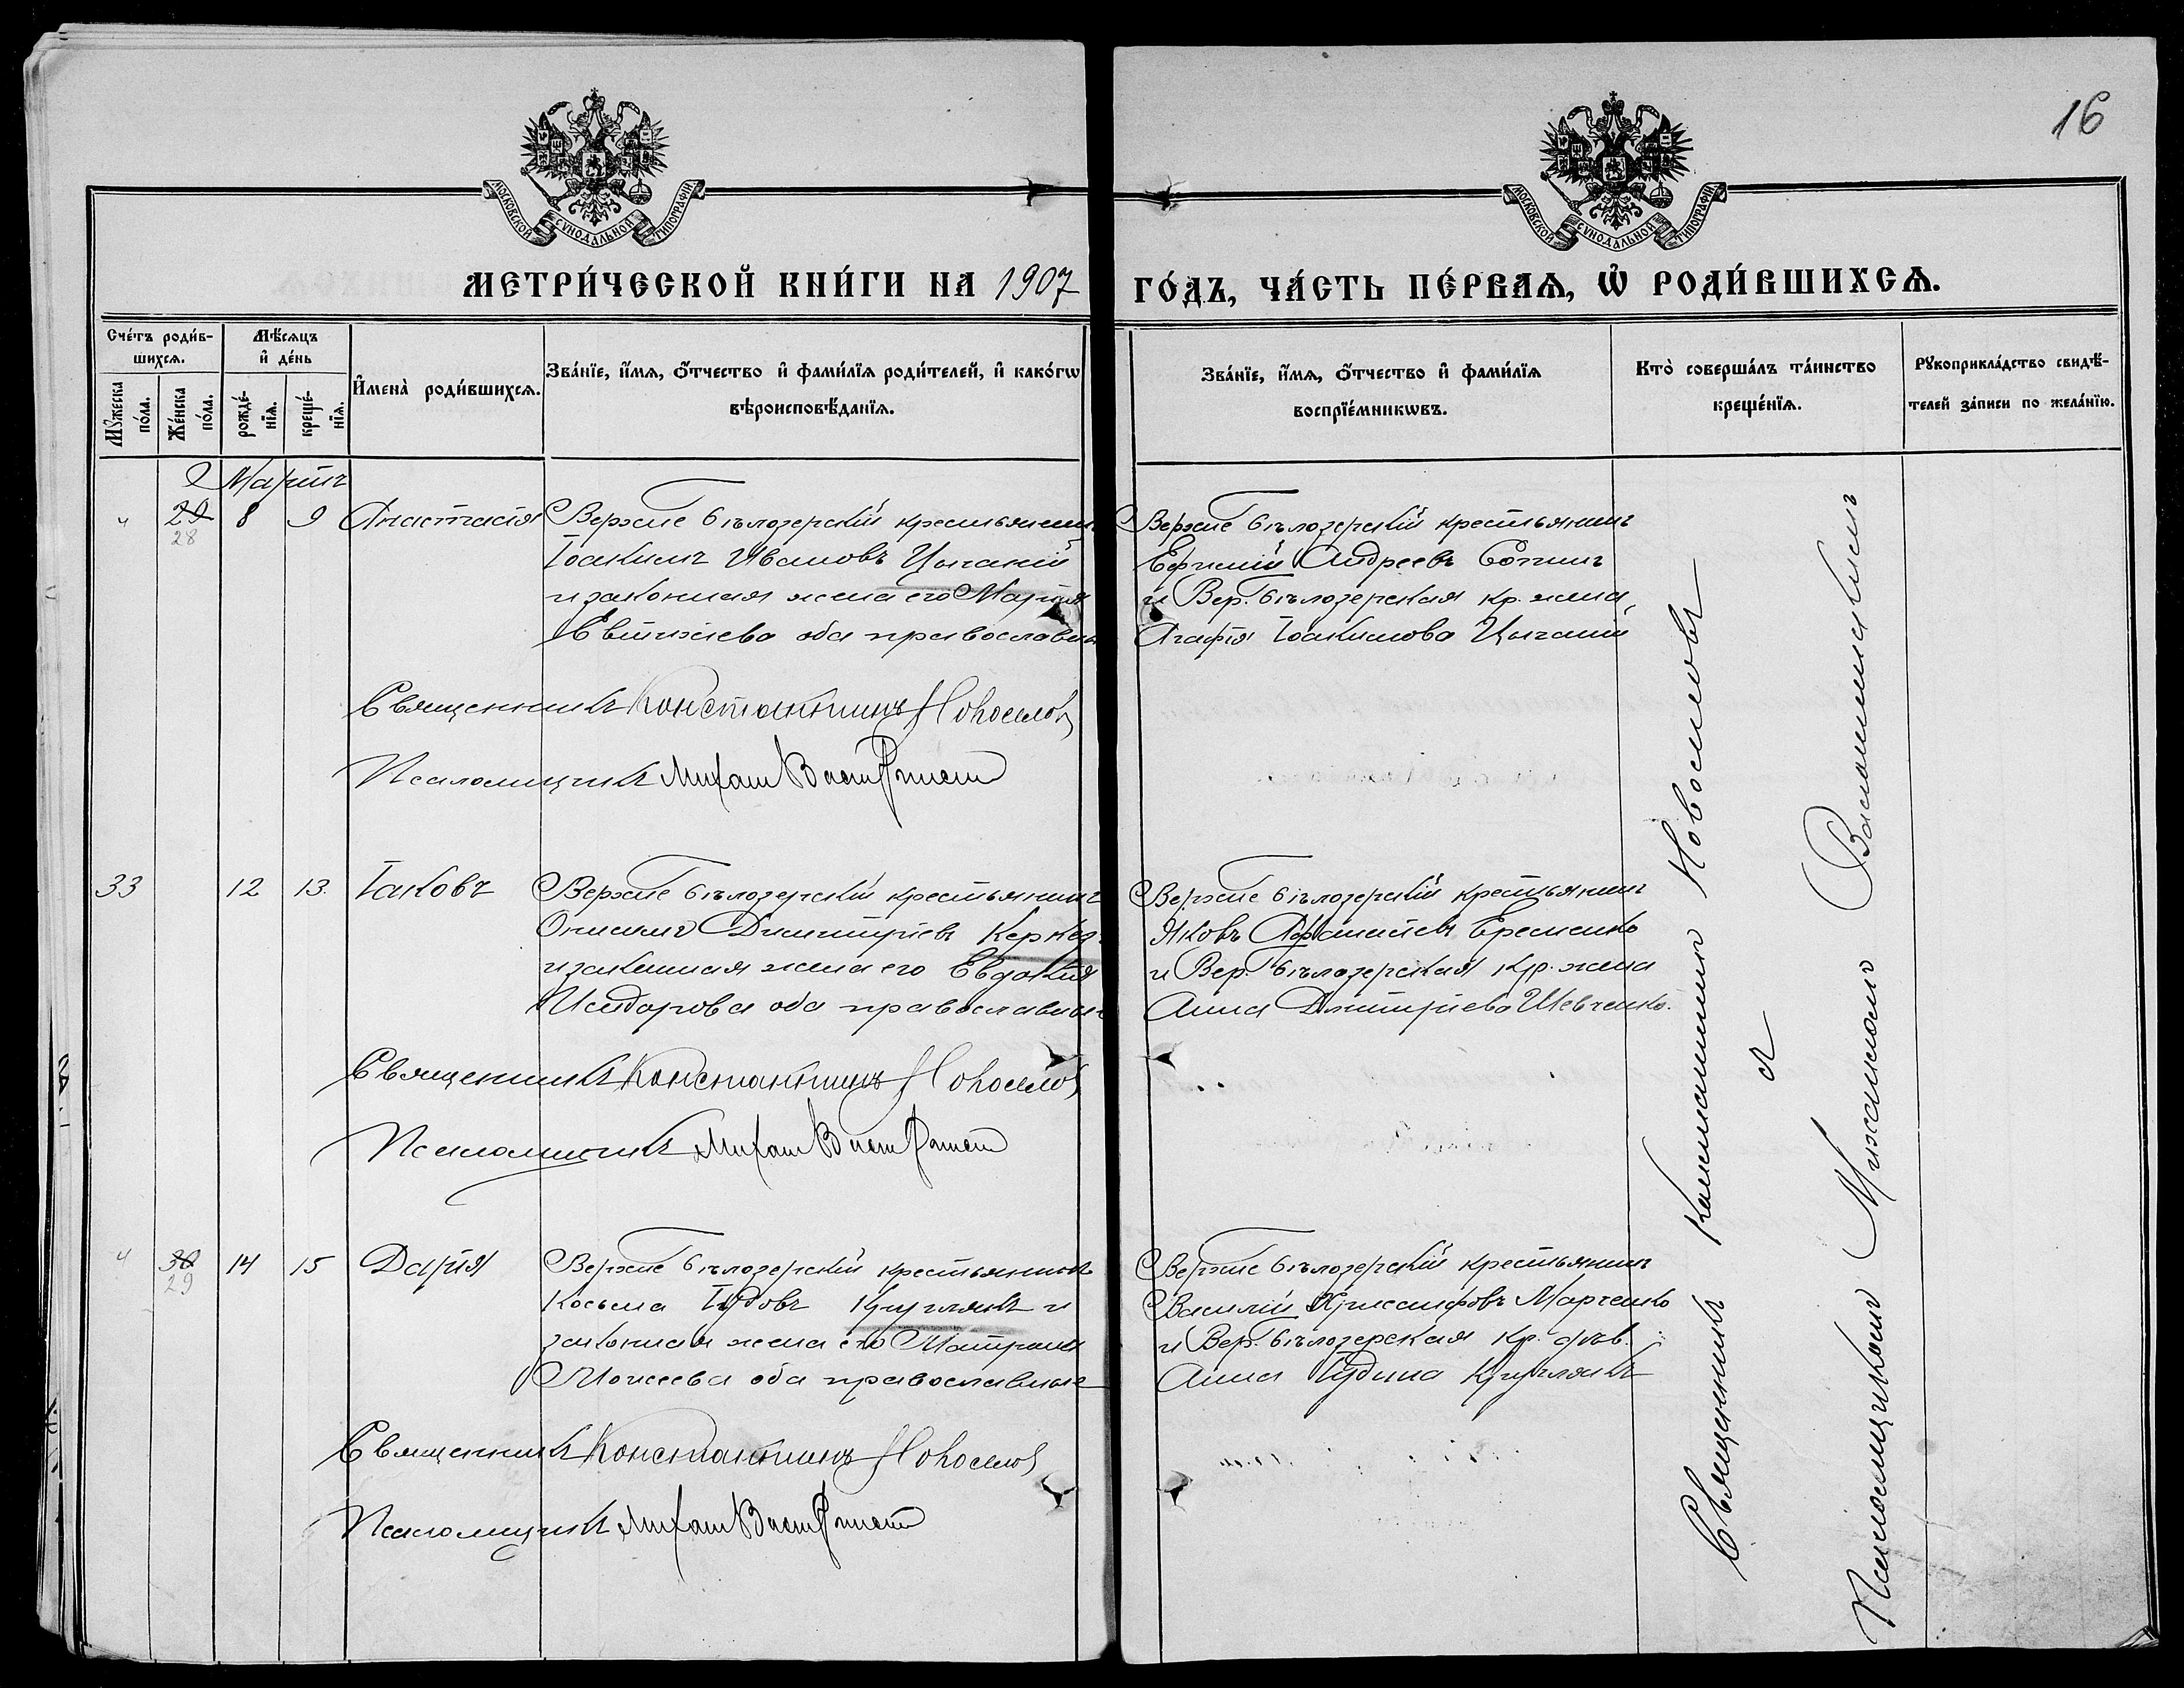 16
МОСКОВСКОЙ СѴНОДАЛЬНОЙ ТИПОГРАФІИ
МОСКОВСКОЙ СѴНОДАЛЬНОЙ ТИПОГРАФІИ
МЕТРИ́ЧЕСКОЙ КНИ́ГИ НА 1907 ГО́ДЪ, ЧА́СТЬ ПЕ́РВАѦ, Ѽ РОДИ́ВШИХСѦ.
Сче́тъ роди́в-
шихсѧ.
Мꙋжеска
по́ла.
Же́нска
по́ла.
Мѣ́сѧцъ
и҆ де́нь
рожде́-
нїѧ.
креще́-
нїѧ.
И҆мена̀ роди́вшихсѧ.
Зва́нїе, и҆́мѧ, ѻ҆́тчество и҆ фами́лїѧ роди́телей, и҆ како́гѡ
вѣроисповѣ́данїѧ.
Зва́нїе, и҆́мѧ, ѻ҆́тчество и҆ фами́лїѧ
воспрїе́мникѡвъ.
Кто̀ соверша́лъ та́инство
креще́нїѧ.
Рꙋкоприкла́дство свидѣ́-
телей за́писи по жела́нїю.
Мартъ
29 8 9 Анастасія Верхне бѣлозерскій крестьянинъ
28
Іоакимъ Ивановъ Цыганій
и законная жена его Марія
Евтихіева оба православны
Верхне бѣлозерскій крестьянинъ
Ефимій Андреевъ
и Вер. бѣлозерская кр. жена
Агафія Іоакимова Цыганій
Священникъ Константинъ Новоселов
Псаломщикъ Михаил
33 12 13. Іаковъ Верхне бѣлозерскій крестьянинъ
Онисимъ Димитріевъ Керкез
и законная жена его Евдокія
Исидорова оба православны
Верхне бѣлозерскій крестьянинъ
Яковъ Афанасіевъ Еременко
и Вер. бѣлозерская кр. жена
Анна Дмитріева Шевченко.
Священникъ Константинъ Новоселов
Псаломщикъ Михаил
30 14 15 Дарія Верхне бѣлозерскій крестьянинъ
29
Косьма Іудовъ Кругляkъ и
законная жена его Матрона
Моисеева оба православные
Верхне бѣлозерскій крестьянинъ
Василій Хрисанфовъ Марченко
и Вер. бѣлозерская кр. дѣв.
Анна Іудина Круглякъ
Священникъ Константинъ Новоселов
Псаломщикъ Михаил
Священникъ Константинъ Новоселовъ
съ
Псаломщикомъ Михаиломъ